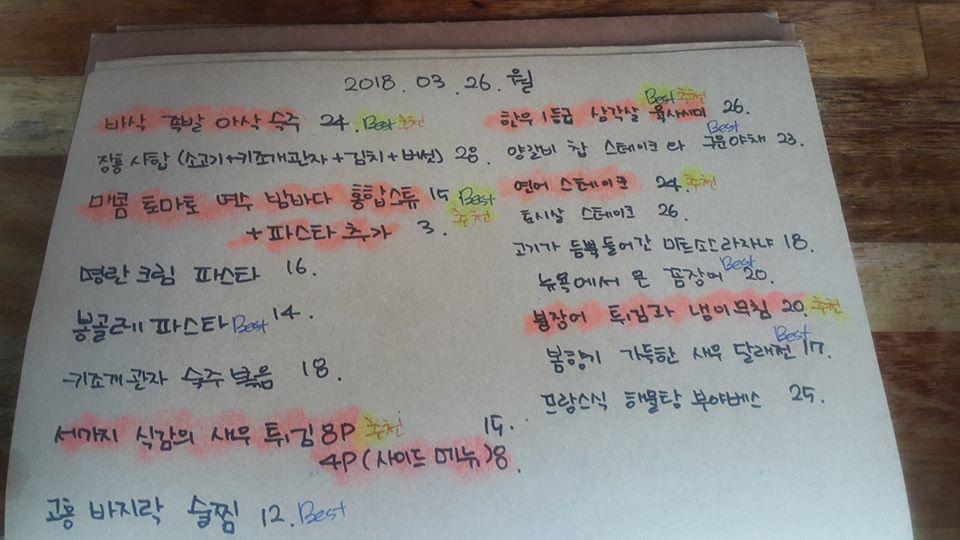 2018. 03. 26. 월
바삭 족발 아삭 숙주 24. Best 추천
장흥 사합 (소고기+키조개관자+김치+버섯) 28.
매콤 토마토 여수 밤바다 홍합스튜 15 Best
+ 파스타 추가 3. 추천
명란크림 파스타 16.
봉골레 파스타 Best 14.
키조개 관자 숙주 볶음 18.
세가지 식감의 새우 튀김 8P 추천 15.
4P (사이드 메뉴) 8.
고흥 바지락 술찜 12. Best
한우 1등급 삼각살 육사시미 Best 추천 26.
양갈비 찹 스테이크와 구운야채 Best 23.
연어 스테이크 24. 추천
토시살 스테이크 26.
고기가 듬뿍 들어간 미트소스 라자냐 18.
뉴욕에서 온 꼼장어 Best 20.
붕장어 튀김과 냉이무침 20. 추천
봄향기 가득한 새우 달래전 Best 17.
프랑스식 해물탕 부야베스 25.